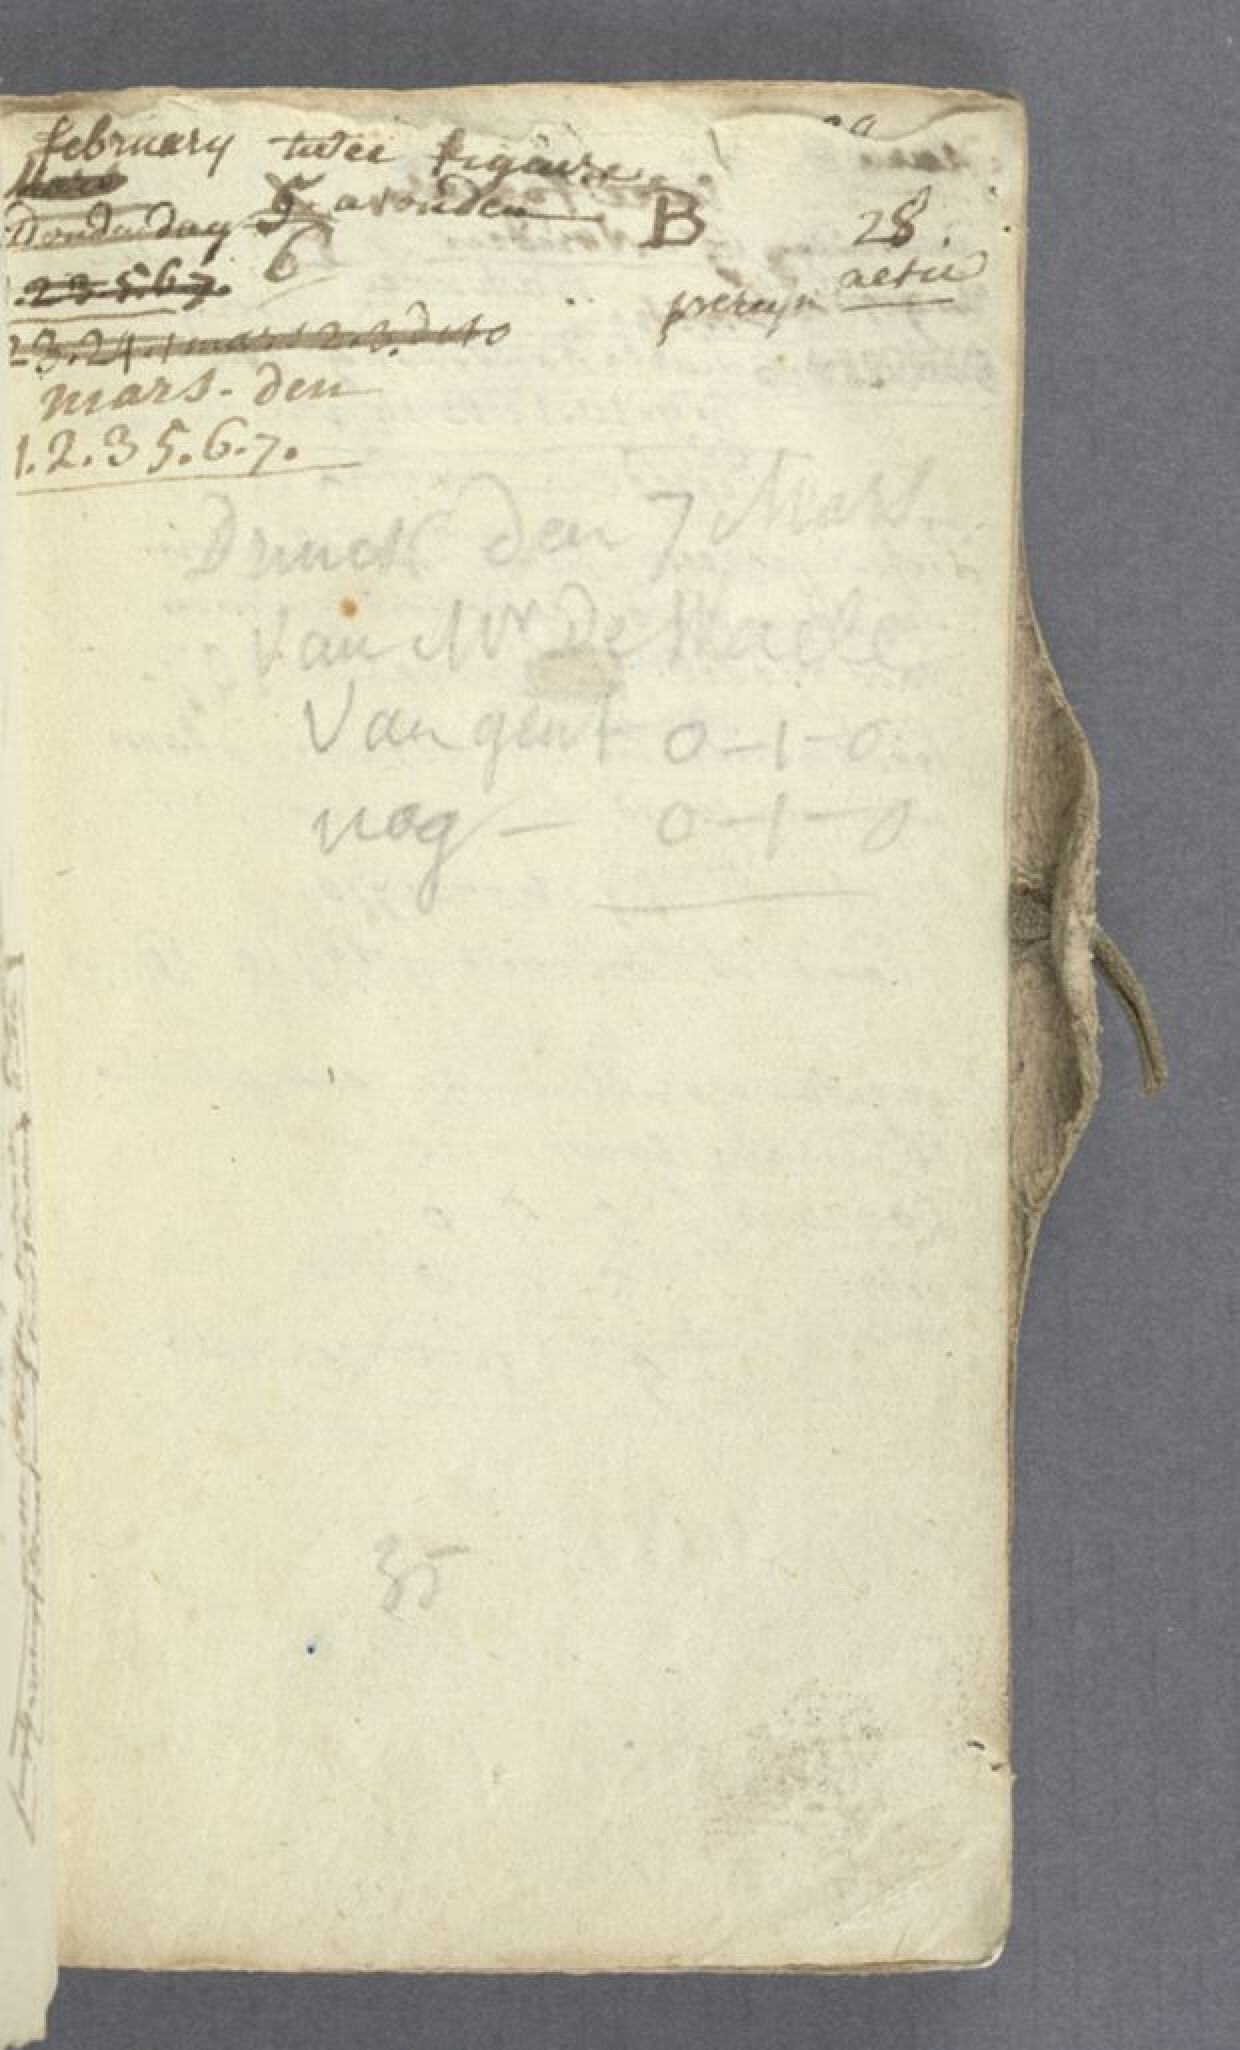 february twee figeure
Donderdag 5 avonden B 28.
6
.2 3 5.6 7. aetie
23.24.1 mars 2.3. dito
mars - den
1.2.3 5.6.7.
den 7 Mars
Van Mr De
Van gent 0-1-0
nog - 0-1-0
35